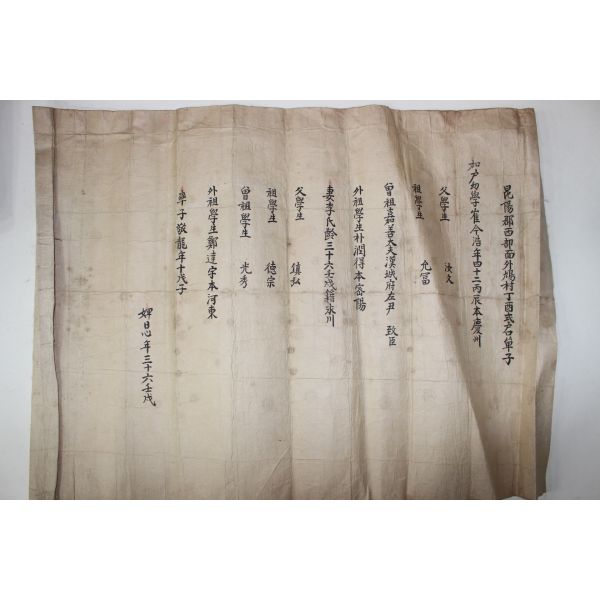 昆陽郡西部面外鳩村丁酉式戶口單子
和戶幼學崔今浩年四十二丙辰本慶州
父學生 汝文
祖學生 允富
曾祖嘉善大夫漢城府左尹 致臣
外祖學生朴潤得本密陽
妻李氏齡三十六壬戌籍永川
父學生 鎮
祖學生 德宗
曾祖學生 光秀
外祖學生鄭達宇本河東
率子敬龍年十戊子
婢日心年三十六壬戌